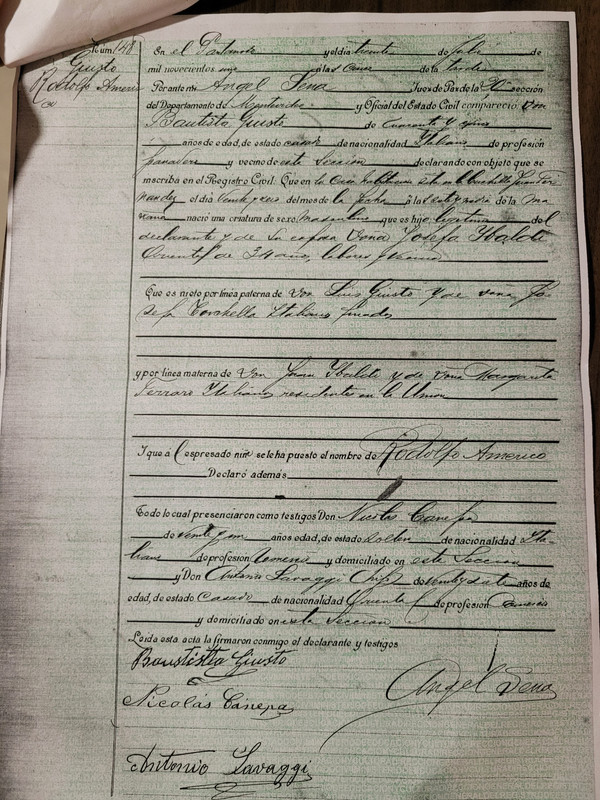 Núm 148
Giusto
Rodolfo Americo
En el y el día treinta de Julio de
mil novecientos uno y a las de la tarde
Por ante mí Angel Sena Juez de Paz de la sección
del Departamento de Montevideo y Oficial del Estado Civil compareció Don
Bautista Giusto de cuarenta y
años de edad, de estado casado de nacionalidad Italiano de profesión
panadero y vecino de esta Sección declarando con objeto que se
inscriba en el Registro Civil: Que en la casa
el día veinte y seis del mes de la fecha a la de la ma
ñana nació una criatura de sexo masculino que es hijo legítimo del
declarante y de su esposa Doña Josefa Ybaldi
Oriental de años, labores
Que es nieto por línea paterna de Don Luis Giusto y de doña Jo
sefa Italianos finados
y por línea materna de Don Juan Ybaldi y de Doña Margarita
Ferraro Italianos residentes en la Union
I que á l espresado niño se le ha puesto el nombre de Rodolfo Americo
Declaró además
Todo lo cual presenciaron como testigos Don Nicolás Canepa
de veinte y un años edad, de estado soltero de nacionalidad Ita-
liano de profesión y domiciliado en esta Sección
y Don Antonio Savaggi de veinte y siete años de
edad, de estado Casado de nacionalidad Oriental de profesión
y domiciliado en esta Seccion
Leída esta acta la firmaron conmigo el declarante y testigos
Bautistta Giusto
Angel Sena
Nicolás Canepa
Antonio Savaggi